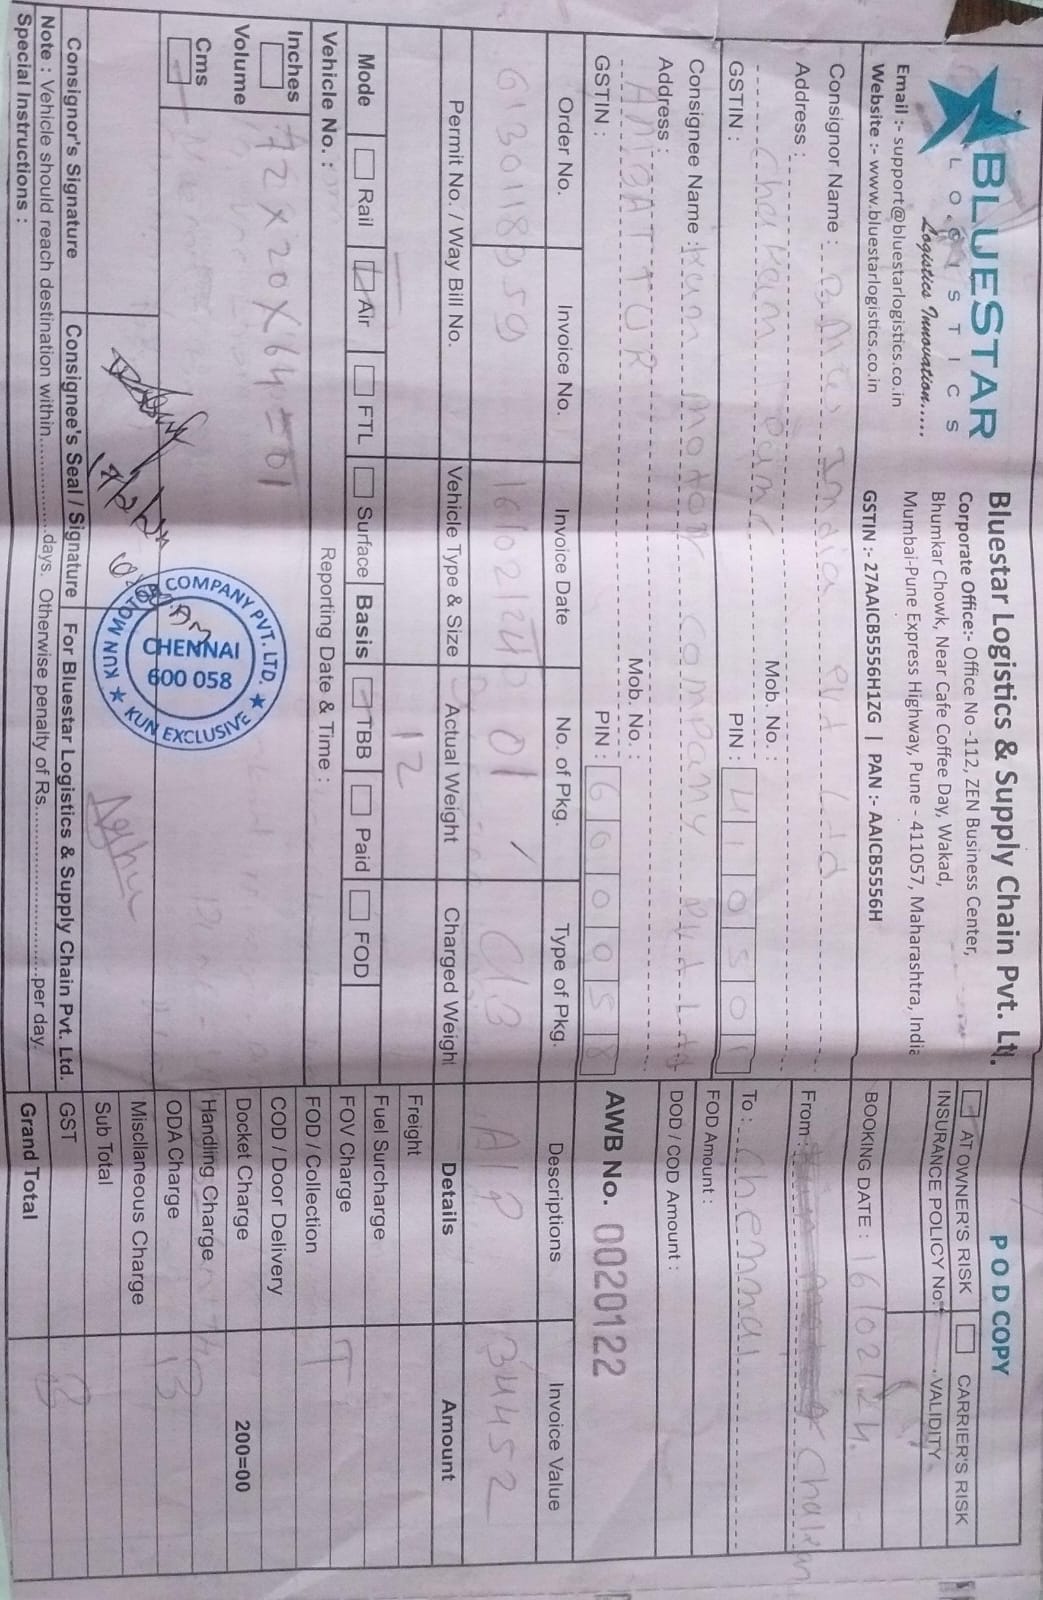 BLUESTAR
LOGISTICS
Logistics Innovation.....
Email :- support@bluestarlogistics.co.in
Website :- www.bluestarlogistics.co.in
Bluestar Logistics & Supply Chain Pvt. Lt.
Corporate Office:- Office No -112, ZEN Business Center,
Bhumkar Chowk, Near Cafe Coffee Day, Wakad,
Mumbai-Pune Express Highway, Pune - 411057, Maharashtra, India
GSTIN :- 27AAICB5556H1ZG | PAN :- AAICB5556H
POD COPY
AT OWNER'S RISK CARRIER'S RISK
INSURANCE POLICY No: VALIDITY
BOOKING DATE : 16/02/24.
From : Chakan
To : Chennai
FOD Amount :
DOD / COD Amount :
AWB No. 0020122
Consignor Name : India Pvt Ltd
Address :
Chakan Mob. No. :
GSTIN : PIN : 410501
Consignee Name : Kun Motor Company Pvt Ltd
Address :
AMBATTUR Mob. No. :
GSTIN : PIN : 600058
Order No. Invoice No. Invoice Date No. of Pkg. Type of Pkg. Descriptions Invoice Value
6130118959 16/02/24 01 C/B A/P 34452
Permit No. / Way Bill No. Vehicle Type & Size Actual Weight Charged Weight Details Amount
12
Mode Rail Air FTL Surface Basis TBB Paid FOD
Vehicle No. : Reporting Date & Time :
Inches
Volume
Cms
72 x 20 x 64 = 01
Freight
Fuel Surcharge
FOV Charge T
FOD / Collection
COD / Door Delivery
Docket Charge 200=00
Handling Charge
ODA Charge B
Miscllaneous Charge
Sub Total
GST B
Grand Total
KUN MOTOR COMPANY PVT. LTD. ★ KUN EXCLUSIVE ★
CHENNAI
600 058
17/2/24
Consignor's Signature Consignee's Seal / Signature For Bluestar Logistics & Supply Chain Pvt. Ltd.
Note : Vehicle should reach destination within.................days. Otherwise penalty of Rs...............................per day.
Special Instructions :